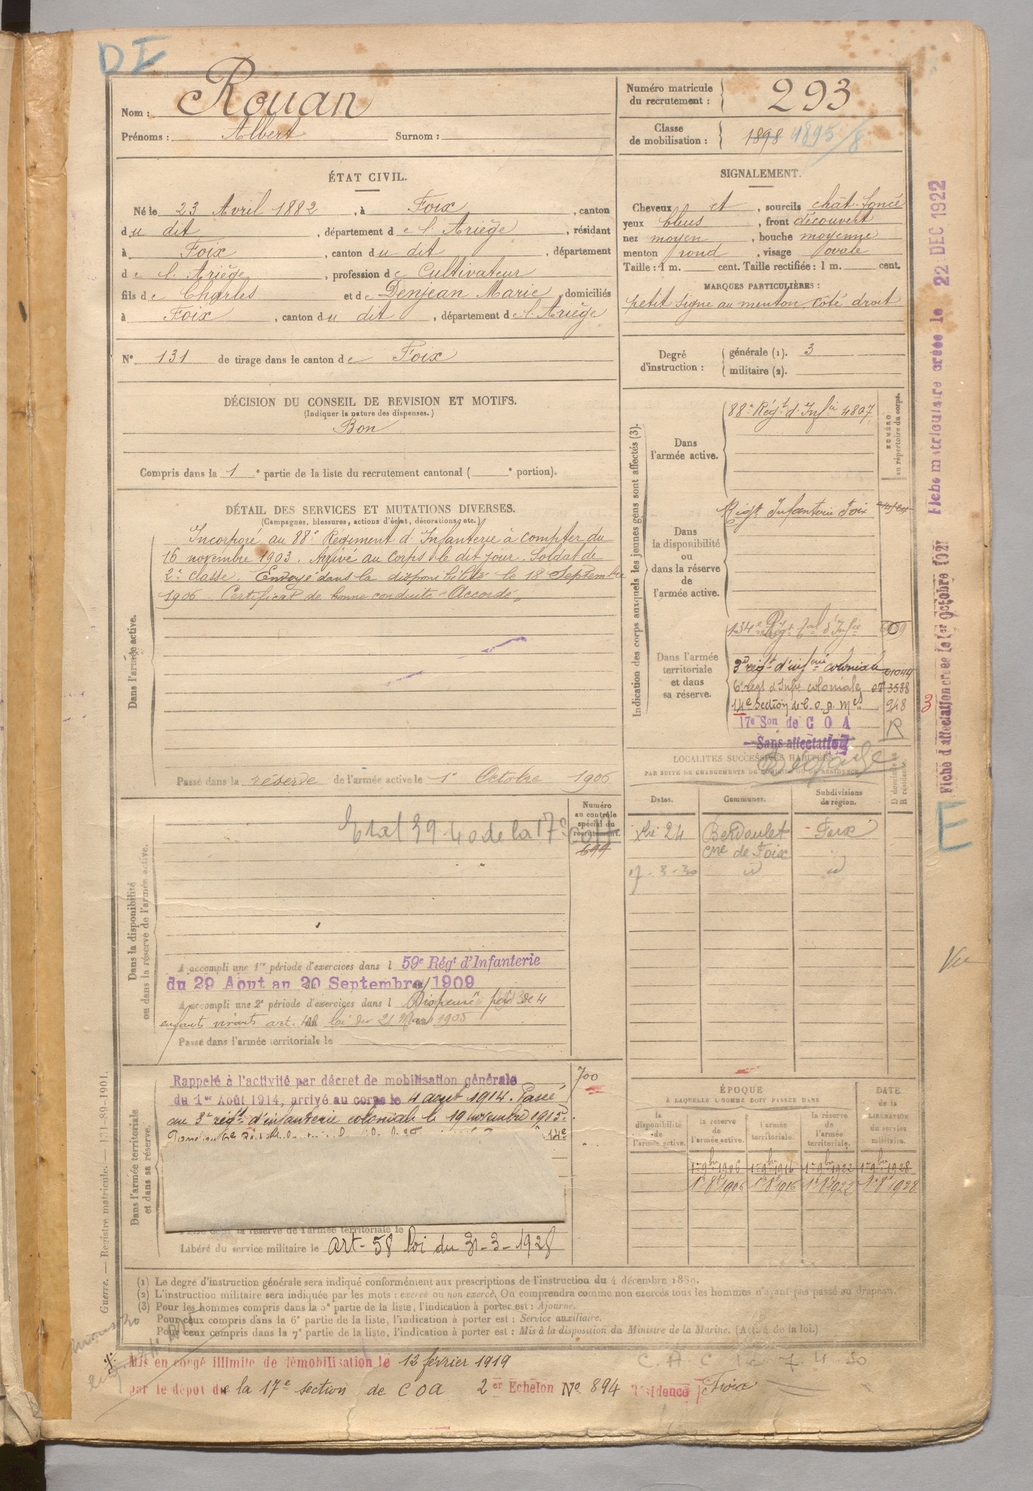 DE
Nom : Rouan
Prénoms : Albert Surnom :
Numéro matricule du recrutement : 293
Classe de mobilisation : 1898 1895/8
ÉTAT CIVIL.
Né le 23 Avril 1882, à Foix, canton
du dit, département de l'Ariège, résidant
à Foix, canton du dit, département
de l'Ariège, profession de Cultivateur
fils de Charles et de Denjean Marie, domiciliés
à Foix, canton du dit, département de l'Ariège
N° 131 de tirage dans le canton de Foix
SIGNALEMENT.
Cheveux et, sourcils chât. foncé
yeux bleus, front découvert
nez moyen, bouche moyenne
menton rond, visage ovale
Taille : 1 m. cent. Taille rectifiée : 1 m. cent.
MARQUES PARTICULIÈRES :
petit signe au menton côté droit
Degré d'instruction : générale (1). 3
militaire (2).
DÉCISION DU CONSEIL DE REVISION ET MOTIFS.
(Indiquer la nature des dispenses.)
Bon
Compris dans la 1e partie de la liste du recrutement cantonal ( e portion).
DÉTAIL DES SERVICES ET MUTATIONS DIVERSES.
(Campagnes, blessures, actions d'éclat, décorations, etc.)
Dans l'armée active.
Incorporé au 88e Régiment d'Infanterie à compter du
16 novembre 1903. Arrivé au Corps le dit jour. Soldat de
2e classe. Envoyé dans la disponibilité le 18 Septembre
1906. Certificat de bonne conduite Accordé,
Passé dans la réserve de l'armée active le 1er Octobre 1906
Indication des corps auxquels les jeunes gens sont affectés (3).
NUMÉRO au répertoire du corps.
Dans l'armée active.
88e Régt d'Infie 4807
Dans la disponibilité ou dans la réserve de l'armée active.
Régt Infanterie Foix
Dans l'armée territoriale et dans sa réserve.
134e Régt d'Infie
3e régt d'infie coloniale 01044
6e régt d'Infie coloniale 073588
14e Section de C.o.a. 948
17e Son de C O A R
Sans affectation
LOCALITÉS SUCCESSIVES HABITÉES
PAR SUITE DE CHANGEMENTS DE DOMICILE OU DE RÉSIDENCE
D domicile R résidence
Dates. Communes. Subdivisions de région.
24 Berdoulet Foix
Cne de Foix
7-8-30 id id
Dans la disponibilité ou dans la réserve de l'armée active.
Numéro au contrôle spécial du recrutement.
699
Etat 39-40 de la 17e
A accompli une 1re période d'exercices dans l 59e Régt d'Infanterie
du 29 Aout au 20 Septembre 1909
A accompli une 2e période d'exercices dans l Dispensé père de 4
enfants vivants art. loi du 21 Mars 1905
Passé dans l'armée territoriale le
Dans l'armée territoriale et dans sa réserve.
700
Rappelé à l'activité par décret de mobilisation générale
du 1er Août 1914, arrivé au corps le 4 août 1914. Passé
au 3e régt d'infanterie coloniale le 19 novembre 1915.
la réserve de l'armée territoriale le
Libéré du service militaire le art. 58 loi du 31-3-1928
ÉPOQUE
À LAQUELLE L'HOMME DOIT PASSER DANS
la disponibilité de l'armée active. la réserve de l'armée active. l'armée territoriale. la réserve de l'armée territoriale.
DATE de la LIBÉRATION du service militaire.
1er 9bre 1906 1er 9bre 1916 1er 9bre 1922 1er 9bre 1928
1er 8bre 1906 1er 8bre 1916 1er 8bre 1922 1er 8bre 1928
(1) Le degré d'instruction générale sera indiqué conformément aux prescriptions de l'instruction du 4 décembre 1889.
(2) L'instruction militaire sera indiquée par les mots : exercé ou non exercé. On comprendra comme non exercés tous les hommes n'ayant pas passé au drapeau.
(3) Pour les hommes compris dans la 5e partie de la liste, l'indication à porter est : Ajourné.
Pour ceux compris dans la 6e partie de la liste, l'indication à porter est : Service auxiliaire.
Pour ceux compris dans la 7e partie de la liste, l'indication à porter est : Mis à la disposition du Ministre de la Marine. (Art. 4 de la loi.)
Mis en congé illimité de démobilisation le 12 février 1919
par le dépôt de la 17e section de COA 2er Echelon N° 894 Résidence Foix
Guerre. — Registre matricule. — 131-89-1901.
Fiche matriculaire créée le 22 DEC 1922
Fiche d'affectation créée le 1er octobre 1927
3
E
Vu